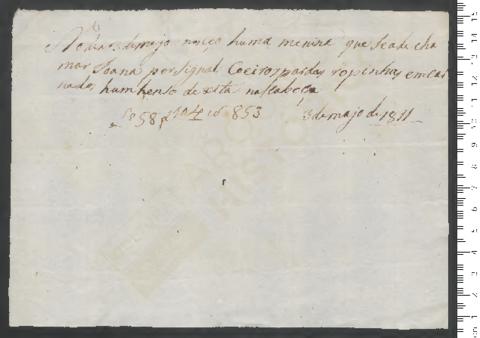 No dia 3 de majo nasçeo huma menina que seade cha
mar Joana por signal Coeiros pardos ropinhas emcar
nadas hum lenso de xita na Cabeça
Lº 58 fl 104 Nº 853 3 de majo de 1811